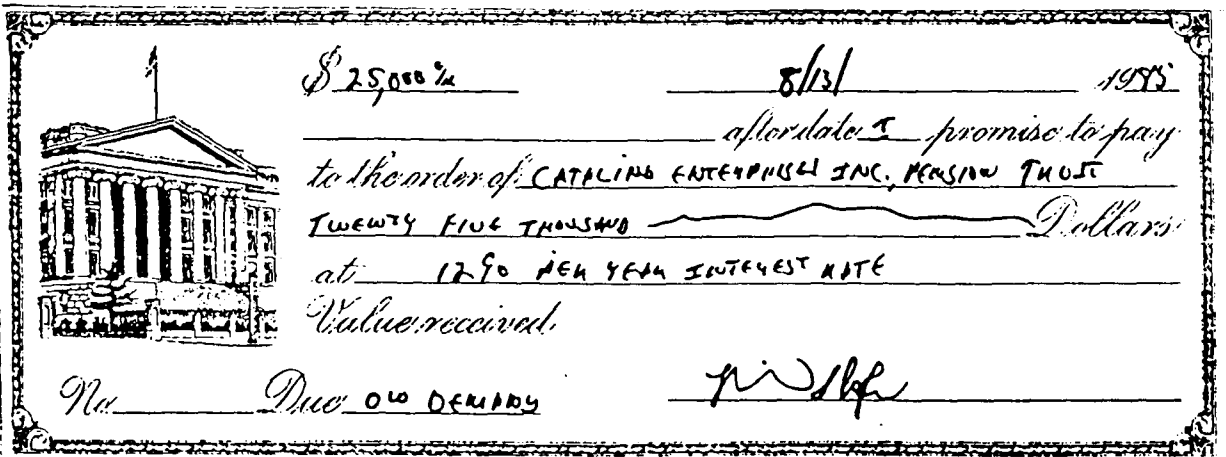 $ 25,000 %x 8/13/ 1985
after date I promise to pay
to the order of CATALINA ENTERPRISES INC., PENSION TRUST
TWENTY FIVE THOUSAND Dollars
at 12% PER YEAR INTEREST RATE
Value received
No Due ON DEMAND